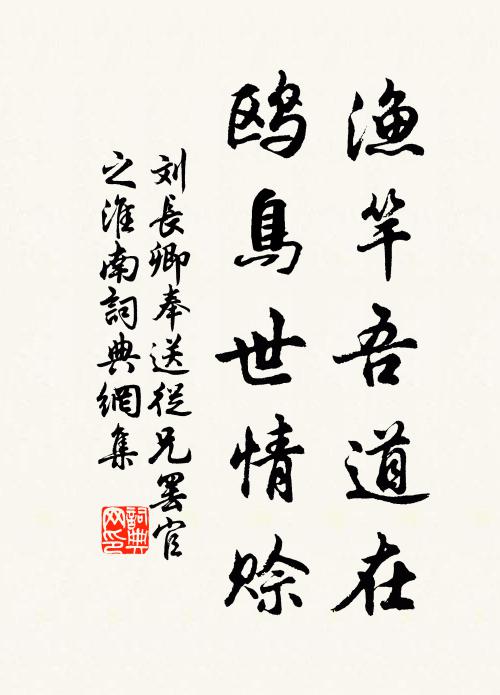 渔竿吾道在
鸥鳥世情赊
刘長卿奉送從兄罢官
之淮南詞典網集
詞典網印